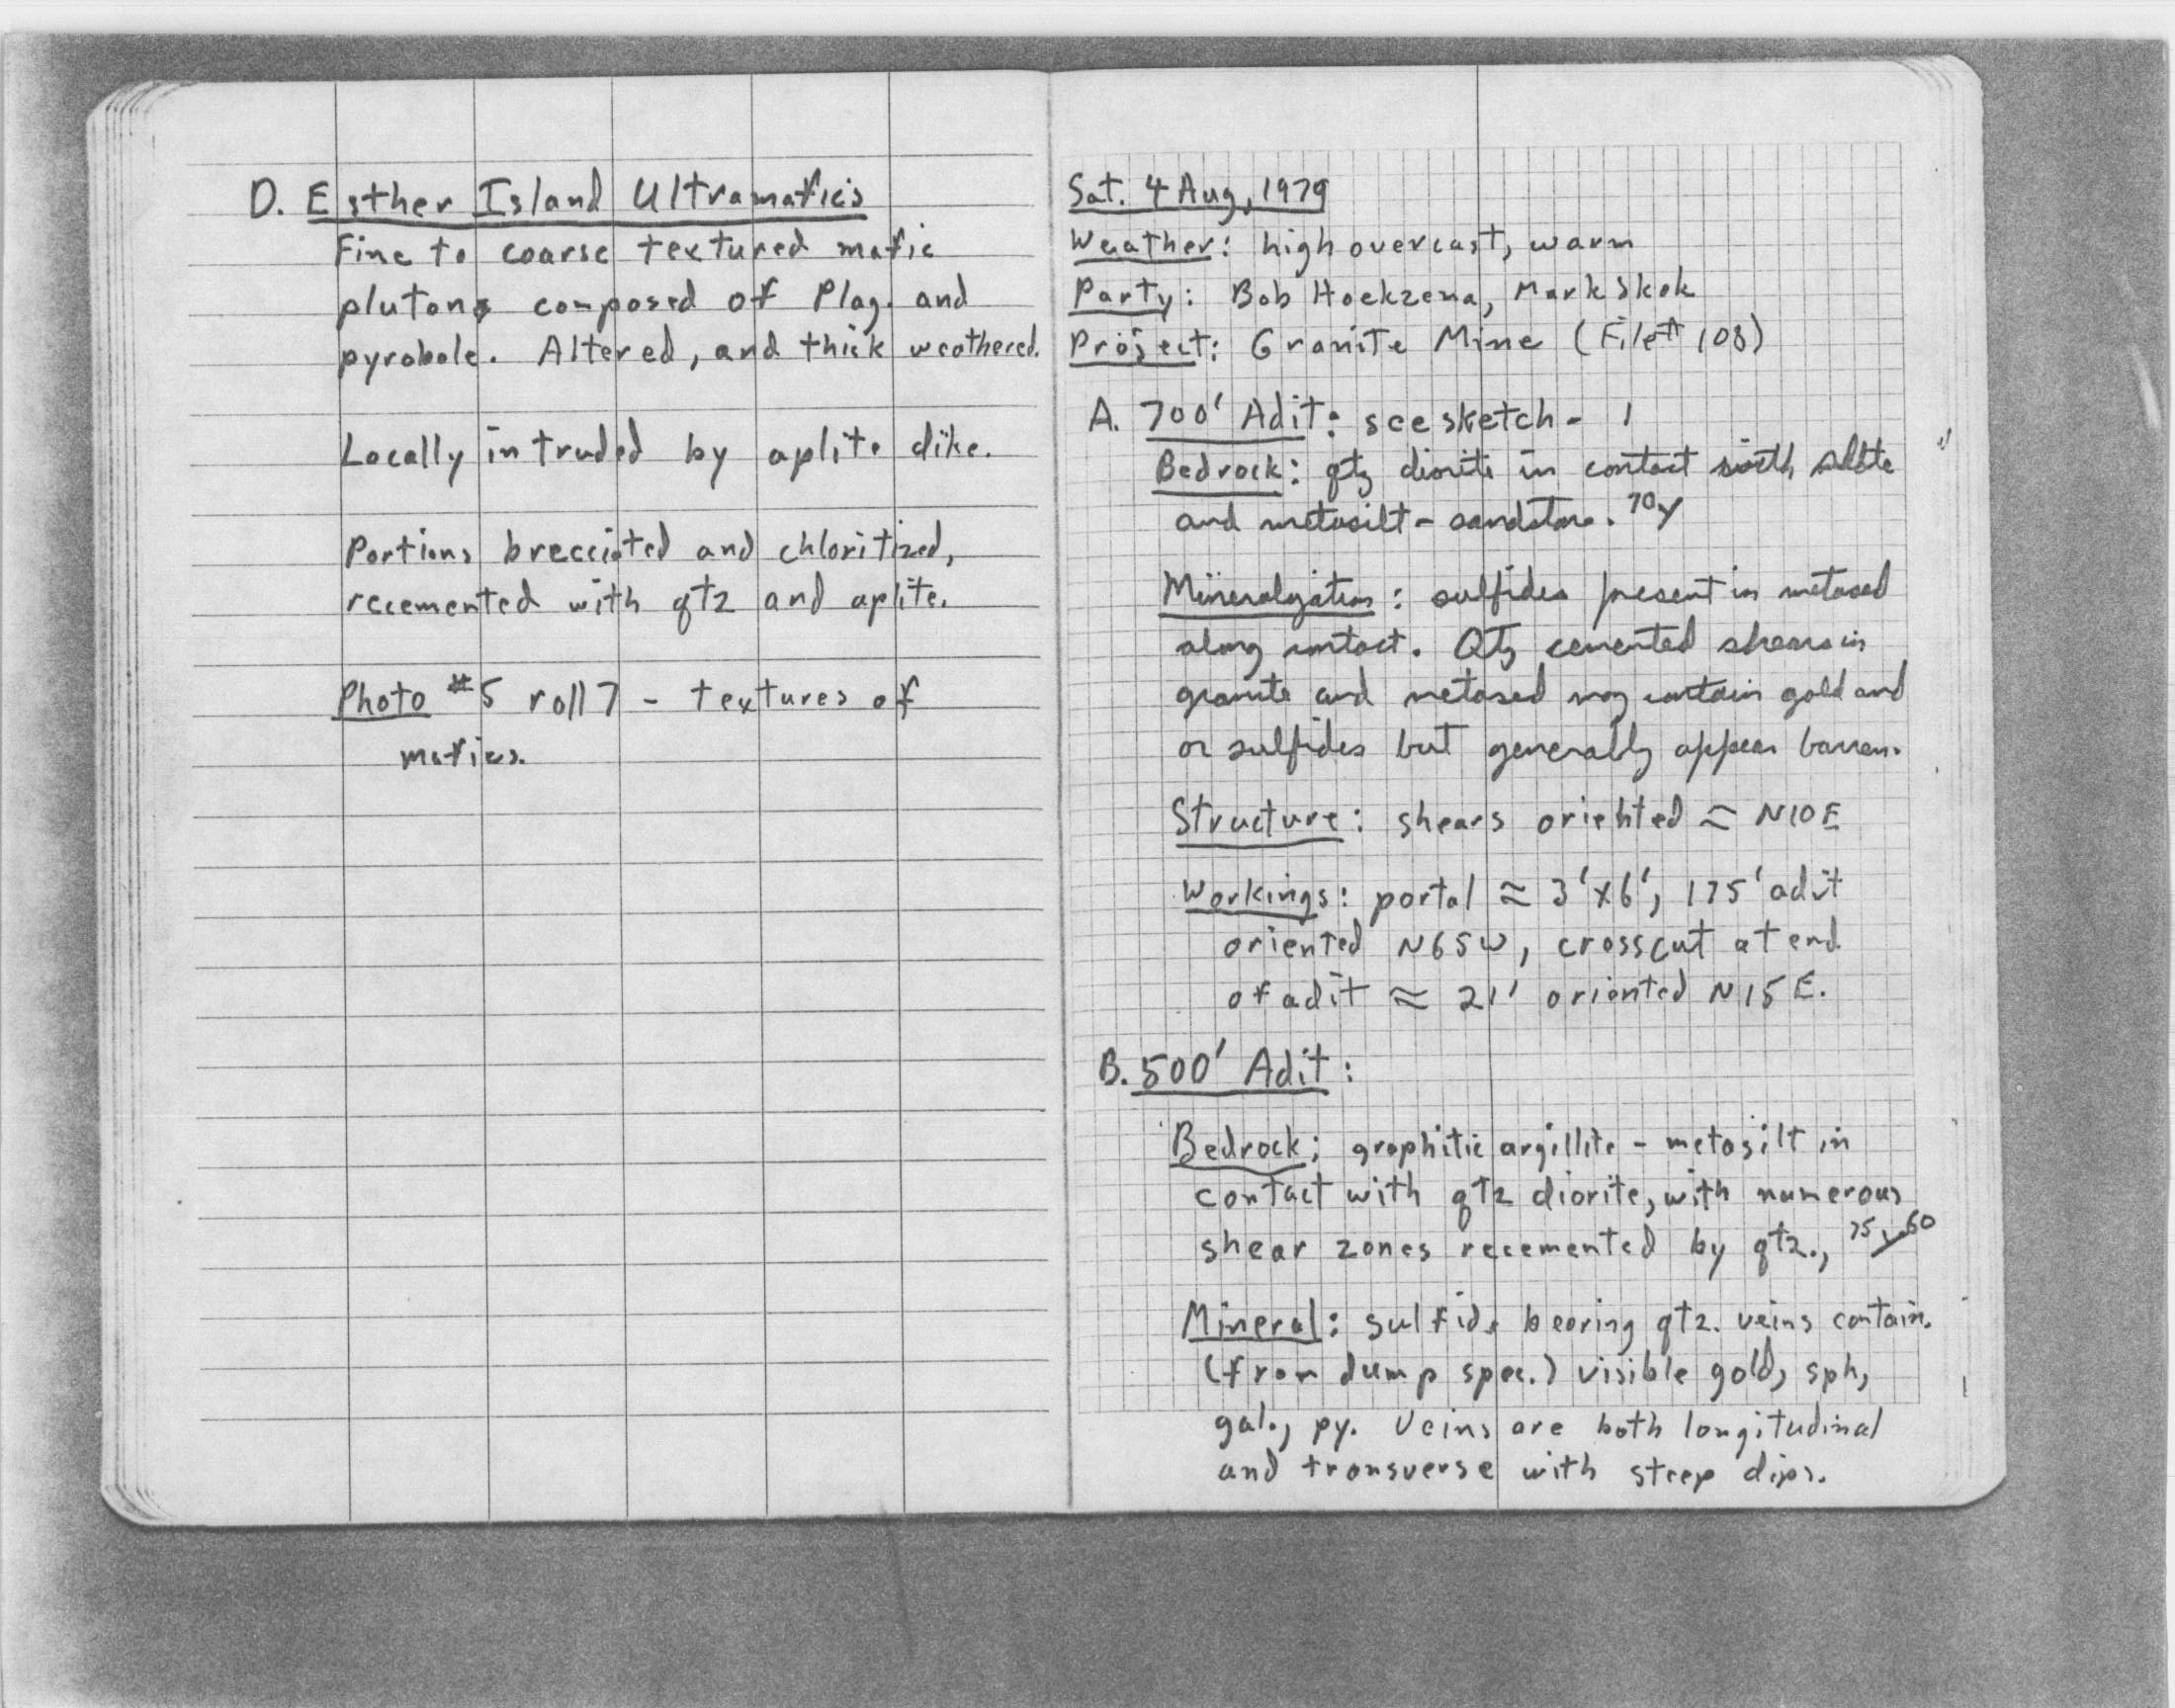 D. Esther Island Ultramafics
Fine to coarse textured mafic
plutons composed of Plag. and
pyrobole. Altered, and thick weathered.
Locally intruded by aplite dike.
Portions brecciated and chloritized,
recemented with qtz and aplite.
Photo #5 roll 7 - textures of
mafics.
Sat. 4 Aug, 1979
Weather: high overcast, warm
Party: Bob Hoekzema, Mark Skok
Project: Granite Mine (File# 108)
A. 700' Adit: see sketch - 1
Bedrock: qtz diorite in contact with slate
and metasilt - sandstone. 70
Mineralization: sulfides present in metased
along contact. Qtz cemented shears in
granite and metased may contain gold and
or sulfides but generally appear barren.
Structure: shears oriented ≈ N10E
Workings: portal ≈ 3'x6', 175' adit
oriented N65W, crosscut at end
of adit ≈ 21' oriented N15E.
B. 500' Adit:
Bedrock: graphitic argillite - metasilt in
contact with qtz diorite, with numerous
shear zones recemented by qtz., 75 60
Mineral: sulfide bearing qtz. veins contain.
(from dump spec.) visible gold, sph,
gal., py. Veins are both longitudinal
and transverse with steep dips.